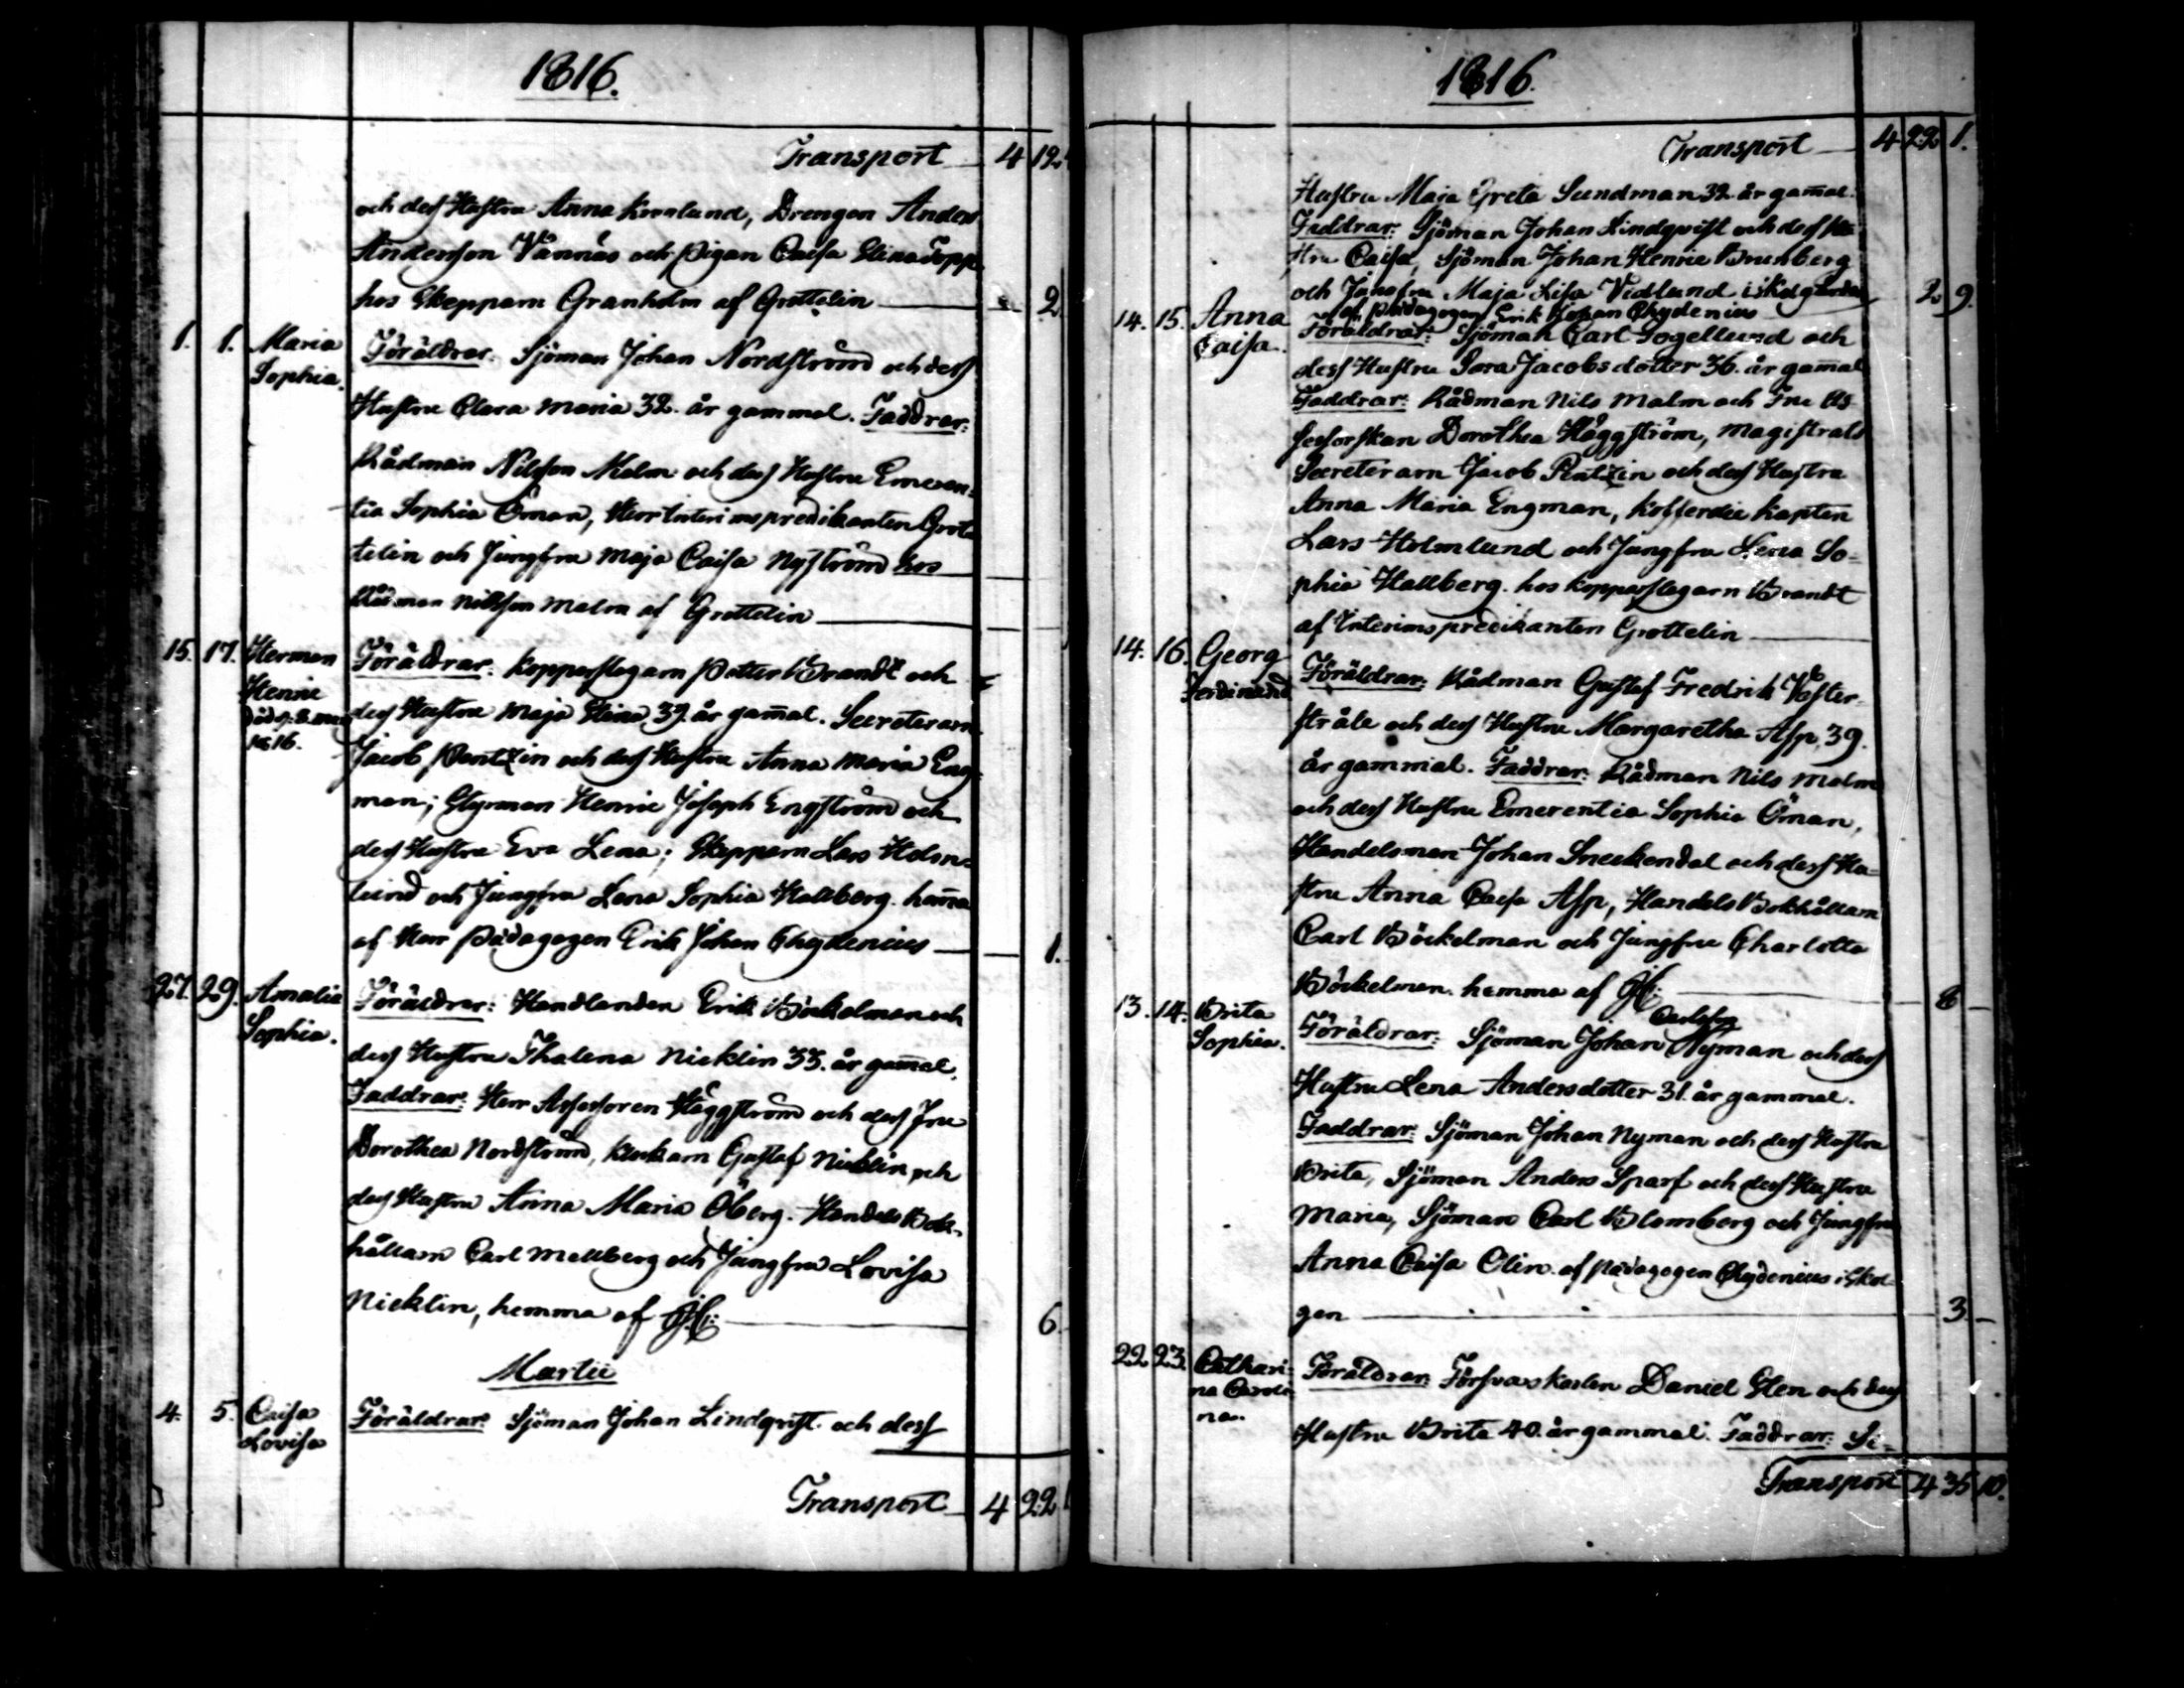 1816.
Transport 4 12
och dess Hustru Anna Kronlund, Drengen Anders
Andersson Vännäs och Pigan Caisa Elina Topp
hos Skepparn Granholm af Grottelin 2
1. 1. Maria Sophia. Föräldrar: Sjöman Johan Nordström och dess
Hustru Clara Maria 32. år gammal. Faddrar:
Rådman Nilsson Malm och dess Hustru Emeren-
tia Sophia Öman, Herr Interimspredikanten Grot-
telin och Jungfru Maja Caisa Nyström hos
Rådman Nilsson Malm af Grottelin
15. 17. Herman Henric död d. 8. Maji 1816. Föräldrar: Kopparslagarn Petter Brandt och
dess Hustru Maja Stina 39 år gam̄al. Secreterarn
Jacob Pentzin och dess Hustru Anna Maria Eng-
man; Styrman Henric Joseph Engström och
dess Hustru Eva Lena; Skepparn Lars Holm-
lund och Jungfru Lena Sophia Hallberg. hem̄a
af Herr Pädagogen Erik Johan Chydenius 1.
27. 29. Amalia Sophia. Föräldrar: Handlanden Erik Böckelman och
dess Hustru Thalena Nicklin 33. år gam̄al.
Faddrar: Herr Assessoren Häggström och dess Fru
Dorothea Nordström, Klockarn Gustaf Nicklin och
dess Hustru Anna Maria Öberg. Handels Bok-
hållarn Carl Mellberg och Jungfru Lovisa
Nicklin, hemma af 6.
Martii
4. 5. Caisa Lovisa Föräldrar: Sjöman Johan Lindqvist och dess
Transport 4 22 1
1816.
Transport 4 22 1.
Hustru Maja Greta Sundman 32 år gam̄al.
Faddrar: Sjöman Johan Lindqvist och dess Hu-
stru Caisa, Sjöman Johan Henric Brunberg
och Jungfru Maja Lisa Vidlund i 2 9.
af Pädagogen Erik Johan Chydenius
14. 15. Anna Caisa. Föräldrar: Sjöman Carl Fogellund och
dess Hustru Sara Jacobsdotter 36. år gam̄al
Faddrar: Rådman Nils Malm och Fru As-
sessorskan Dorothea Häggström, Magistrats
Secreterarn Jacob Pentzin och dess Hustru
Anna Maria Engman, Kofferdie Kapten
Lars Holmlund och Jungfru Lena So-
phia Hallberg. hos Kopparslagarn Brandt
af Interimspredikanten Grottelin
14. 16. Georg Ferdinand Föräldrar: Rådman Gustaf Fredrik Väster-
stråle och dess Hustru Margaretha Asp 39.
år gammal. Faddrar: Rådman Nils Malm
och dess Hustru Emerentia Sophia Öman,
Handelsman Johan Sneckendal och dess Hu-
stru Anna Caisa Asp, Handels Bokhållarn
Carl Böckelman och Jungfru Charlotta
Böckelman. hemma af 8
13. 14. Brita Sophia. Carlsson
Föräldrar: Sjöman Johan Nyman och dess
Hustru Lena Andersdotter 31. år gammal.
Faddrar: Sjöman Johan Nyman och dess Hustru
Brita, Sjöman Anders Sparf och dess Hustru
Maria, Sjöman Carl Blomberg och Jungfru
Anna Caisa Olin. af Pädagogen Chydenius i
gen 3.
22 23. Cathari-na Caroli-na. Föräldrar: Försvarskarlen Daniel Glen och dess
Hustru Brita 40. år gammal. Faddrar: Si-
Transport 4 35 10.